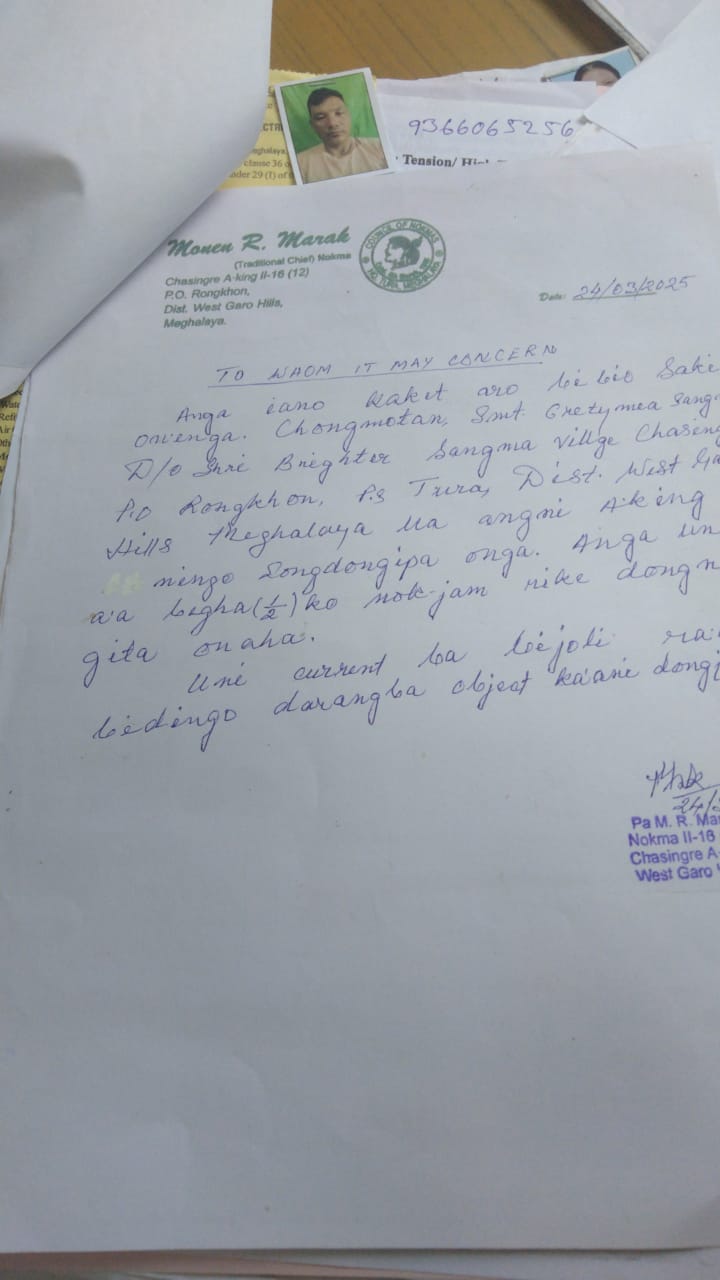 9366065256
Tension/
CTRI
clause 36 o
nder 29 (1) of
Monen R. Marak
(Traditional Chief) Nokma
Chasingre A·king II-16 (12)
P.O. Rongkhon,
Dist. West Garo Hills,
Meghalaya.
COUNCIL OF NOKMAS
Date: 24/03/2025
TO WAOM IT MAY CONCERN
Anga iano kaket aro bi bio Saki
onenga. Chongmotan, Smt. Gretymea Sang
D/o Shri Brieghter Sangma Villge Chasin
P.o Rongkhon, P.s Tura, Dist. West Ga
Hills Meghalaya Ua angni A·king
ningo Songdongipa onga. Anga un
a·a bigha (1/2) ko nok-jam rike dong n
gita onaha.
Uni current ba bijoli ra
bidingo darangba object ka·ani dong
24/3
Pa M. R. Ma
Nokma II-16
Chasingre A
West Garo